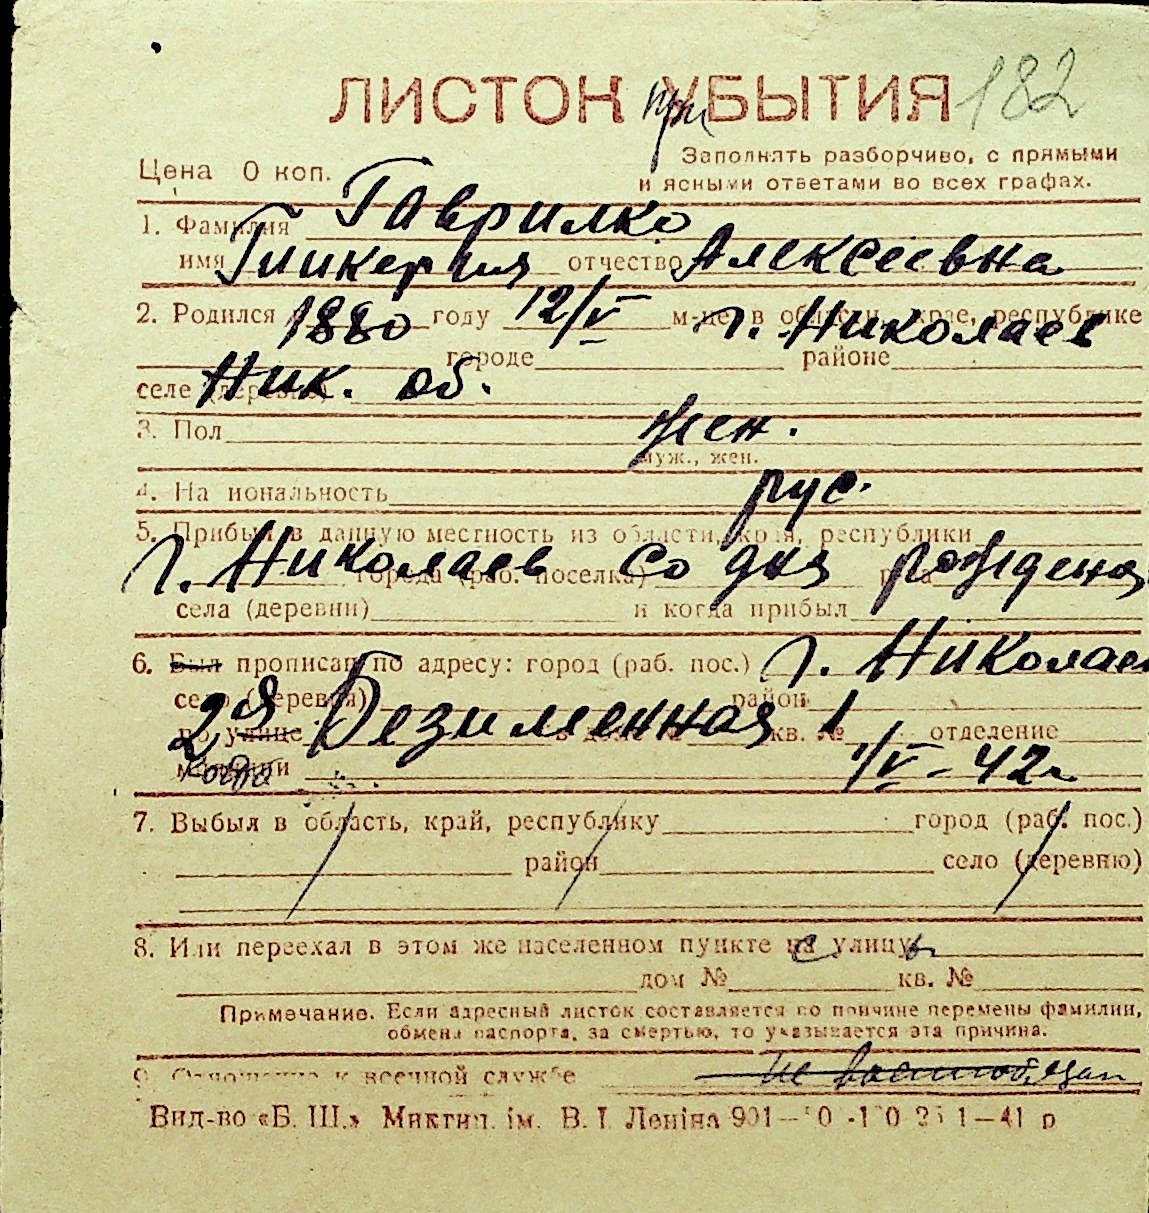 ЛИСТОК УБЫТИЯ 182
при
Цена 0 коп.
Заполнять разборчиво, с прямыми
и ясными ответами во всех графах.
1. Фамилия Гаврилко
имя Гликерия отчество Алексеевна
2. Родился 1880 году 12/V м-це, в области, крае, республике
г. Николаев
городе районе
селе (деревне) Ник. об.
3. Пол жен.
муж., жен.
4. Национальность рус.
5. Прибыл в данную местность из области, края, республики
г. Николаев со дня рождения
города (раб. поселка) р-на
села (деревни) и когда прибыл
6. Был прописан по адресу: город (раб. пос.) г. Николаев
село (деревня) район
2ая Безименная 1
по улице в доме № кв. № отделение
милиции 1/V-42г
7. Выбыл в область, край, республику город (раб. пос.)
район село (деревню)
8. Или переехал в этом же населенном пункте на улицу
с ы
дом № кв. №
Примечание. Если адресный листок составляется по причине перемены фамилии,
обмена паспорта, за смертью, то указывается эта причина.
9. Отношение к военной службе не военнообязан
Вид-во «Б. Ш.» Микгип. ім. В. І. Леніна